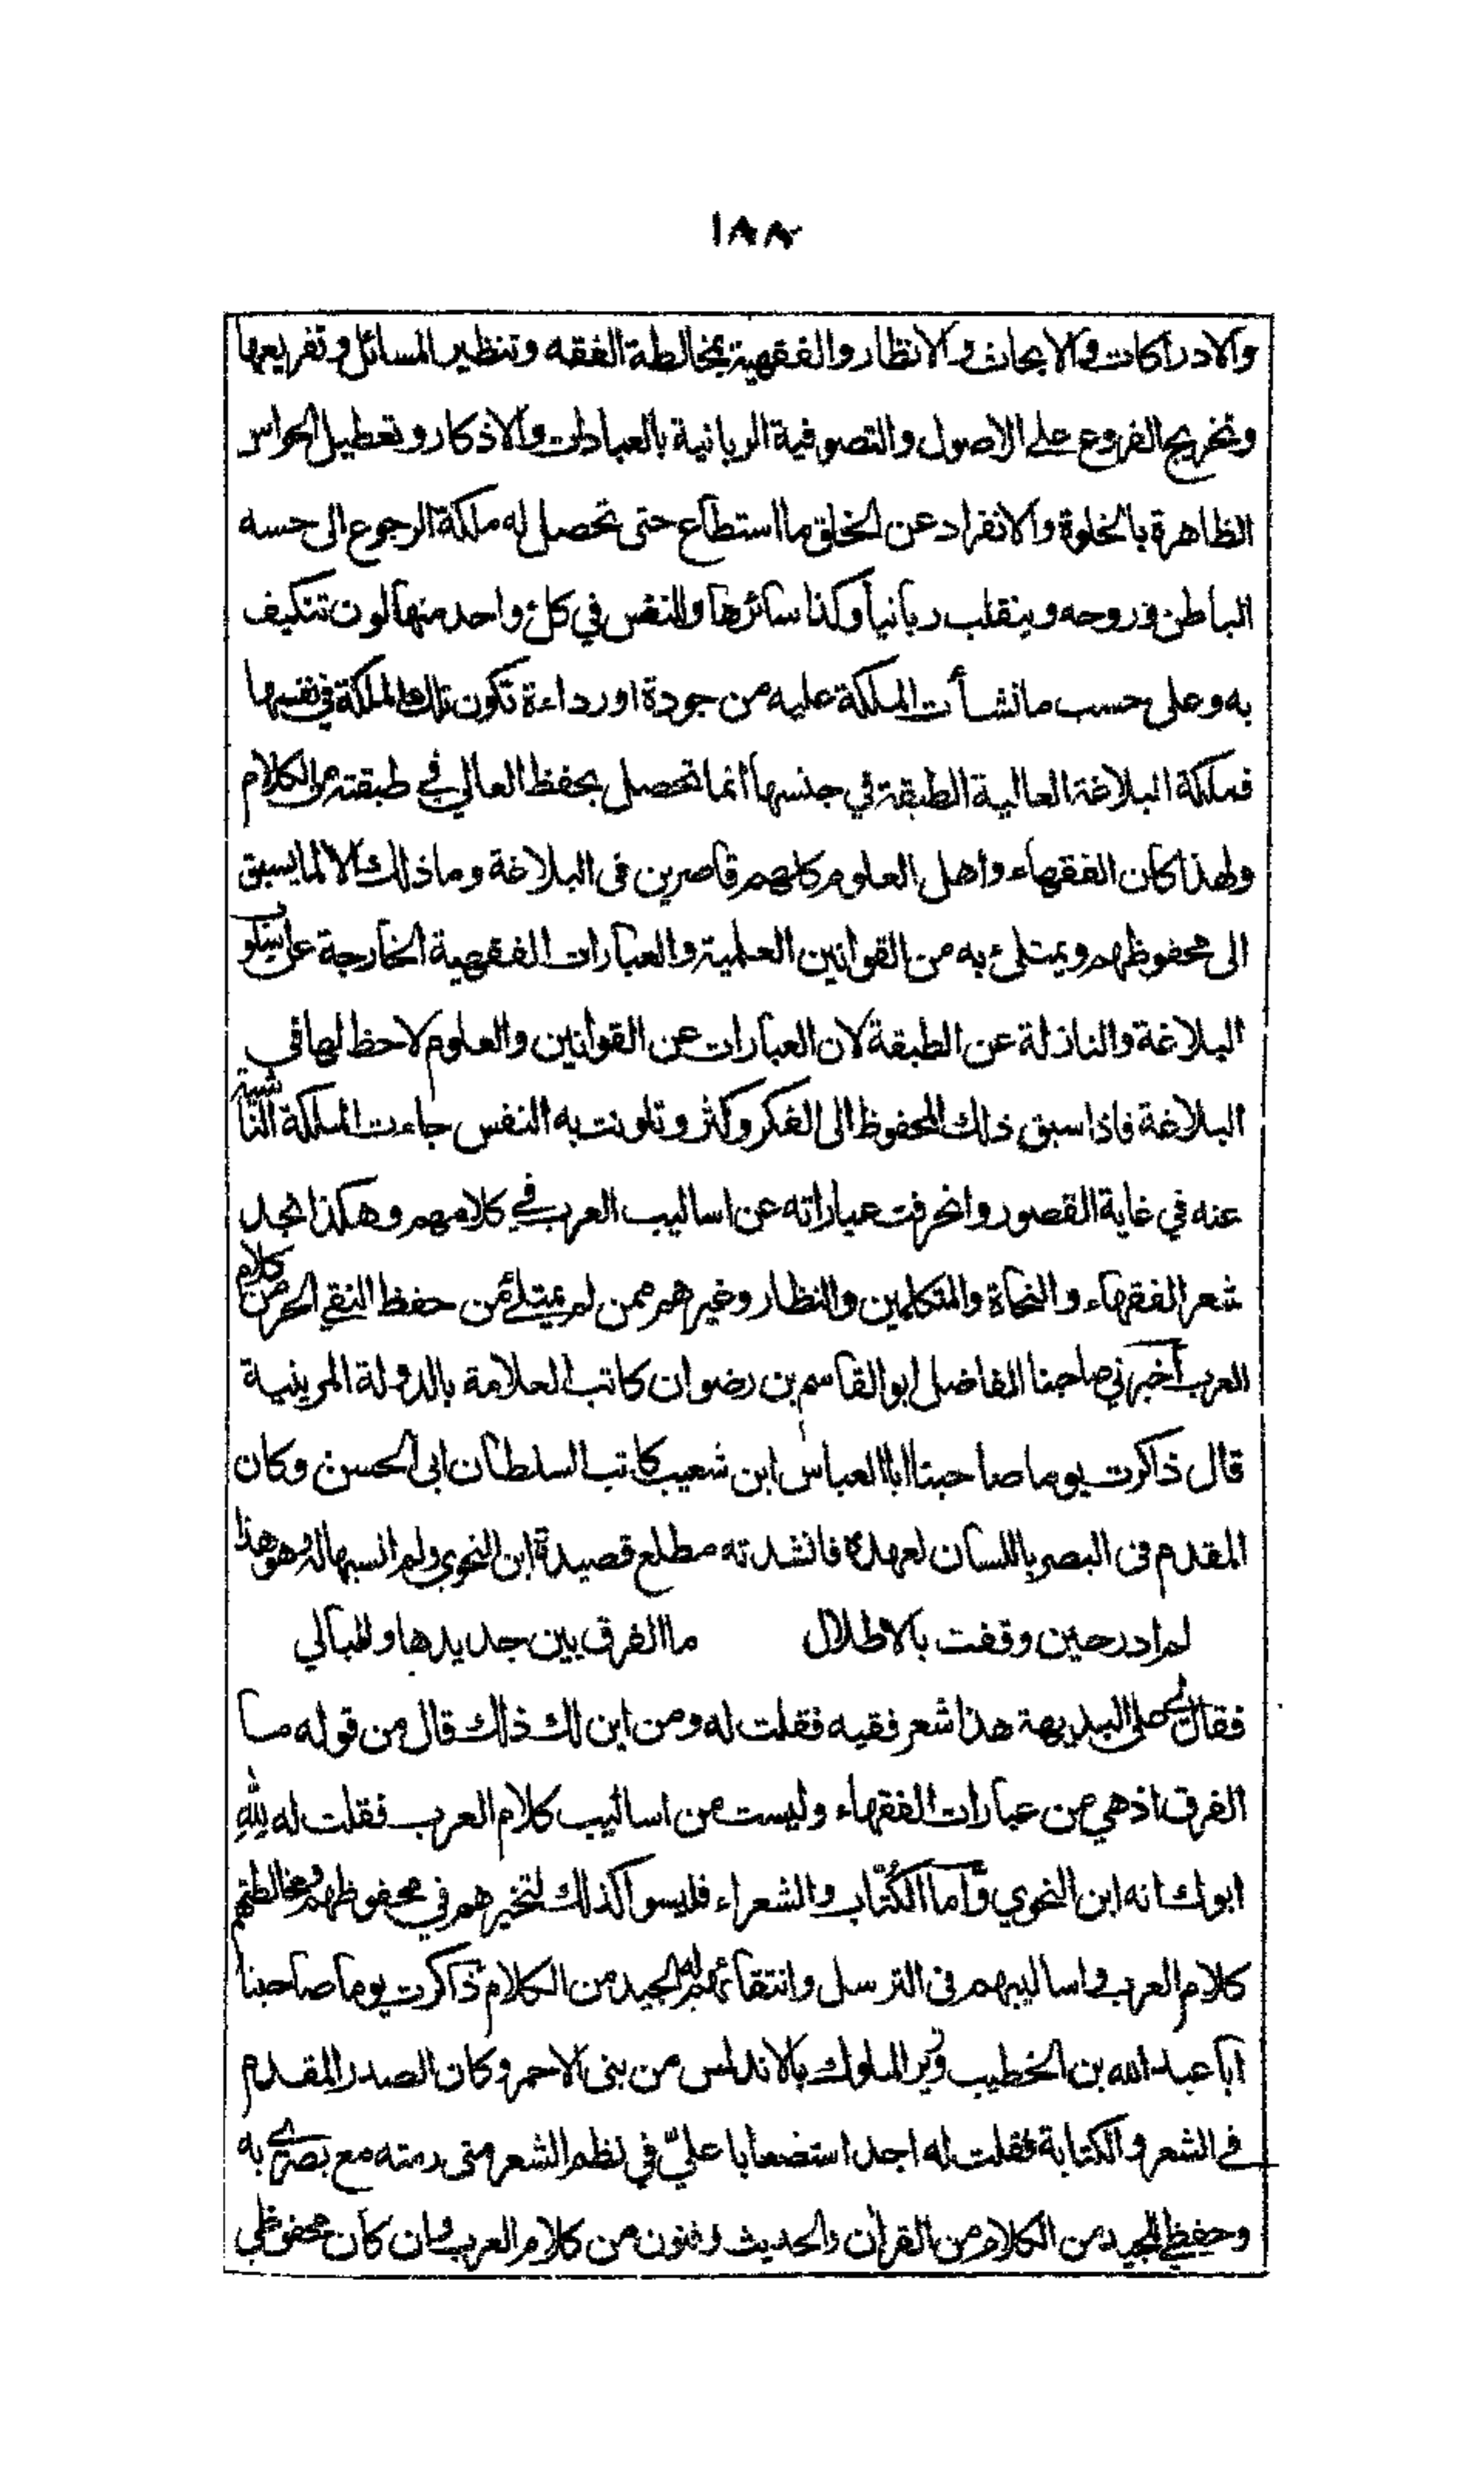 ١٨٨
والادراكات والابحاث والانظار والفقهية بمخالطة الفقه وتنظير المسائل وتفريعها
وتخريج الفروع على الاصول والتصوفية الربانية بالعبادات والاذكار وتعطيل الحواس
الظاهرة بالخلوة والانفراد عن الخلق ما استطاع حتى تحصل له ملكة الرجوع الى حسه
الباطن وروحه وينقلب ربانيا وكذا سائرها وللنفس في كل واحد منها لون تتكيف
به وعلى حسب ما نشأت الملكة عليه من جودة او رداءة تكون تلك الملكة في نفسها
فملكة البلاغة العالية الطبقة في جنسها انما تحصل بحفظ العالي في طبقته من الكلام
ولهذا كان الفقهاء واهل العلوم كلهم قاصرين فى البلاغة وما ذلك الا لما يسبق
الى محفوظهم ويمتلئ به من القوانين العلمية والعبارات الفقهية الخارجة عن اسلوب
البلاغة والنازلة عن الطبقة لان العبارات عن القوانين والعلوم لا حظ لها في
البلاغة فاذا سبق ذلك المحفوظ الى الفكر وكثر وتلونت به النفس جاءت الملكة الناشية
عنه في غاية القصور وانحرفت عباراته عن اساليب العرب في كلامهم وهكذا نجد
شعر الفقهاء والنحاة والمتكلمين والنظار وغيرهم ممن لم يمتلئ من حفظ النقي الحر من كلام
العرب اخبرني صاحبنا الفاضل ابو القاسم بن رضوان كاتب العلامة بالدولة المرينية
قال ذاكرت يوما صاحبنا ابا العباس ابن شعيب كاتب السلطان ابى الحسن وكان
المقدم فى البصر باللسان لعهده فانشدته مطلع قصيدة ابن النحوي ولم انسبها له وهو هذا
لم ادر حين وقفت بالاطلال ما الفرق بين جديدها والبالي
فقال لي على البديهة هذا شعر فقيه فقلت له ومن اين لك ذلك قال من قوله ما
الفرق اذ هي من عبارات الفقهاء وليست من اساليب كلام العرب فقلت له لله
ابوك انه ابن النحوي واما الكتاب والشعراء فليسوا كذلك لتخيرهم في محفوظهم ومخالطتهم
كلام العرب واساليبهم فى الترسل وانتقائهم له الجيد من الكلام ذاكرت يوما صاحبنا
ابا عبد الله بن الخطيب وزير الملوك بالاندلس من بنى الاحمر وكان الصدر المقدم
في الشعر والكتابة فقلت له اجد استصعابا عليّ في نظم الشعر متى رمته مع بصري به
وحفظي للجيد من الكلام من القرآن والحديث وفنون من كلام العرب وان كان محفوظي